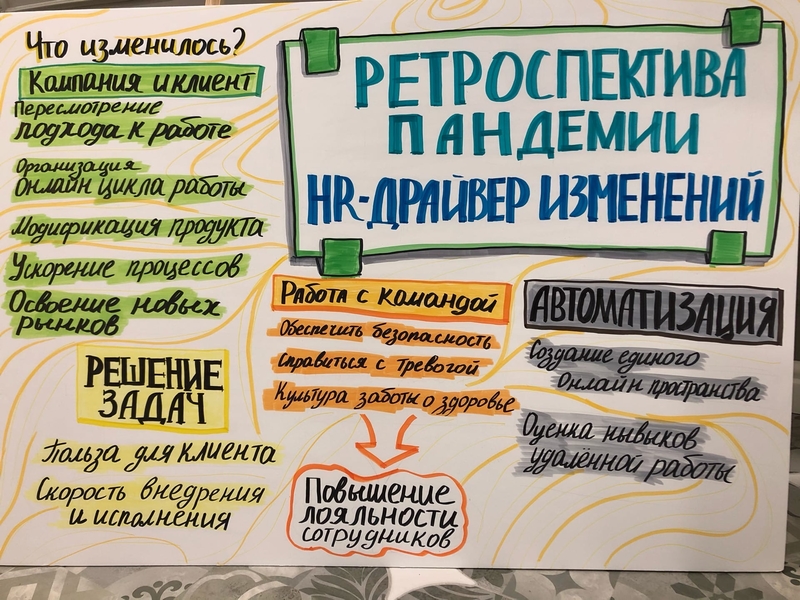 Что изменилось?
Компания и клиент
Пересмотрение
подхода к работе
Организация
онлайн цикла работы
Модификация продукта
Ускорение процессов
Освоение новых
рынков
РЕШЕНИЕ
ЗАДАЧ
Польза для клиента
Скорость внедрения
и исполнения
РЕТРОСПЕКТИВА
ПАНДЕМИИ
HR-ДРАЙВЕР ИЗМЕНЕНИЙ
Работа с командой
Обеспечить безопасность
Справиться с тревогой
Культура заботы о здоровье
Повышение
лояльности
сотрудников
АВТОМАТИЗАЦИЯ
Создание единого
Онлайн пространства
Оценка нывыков
удалённой работы